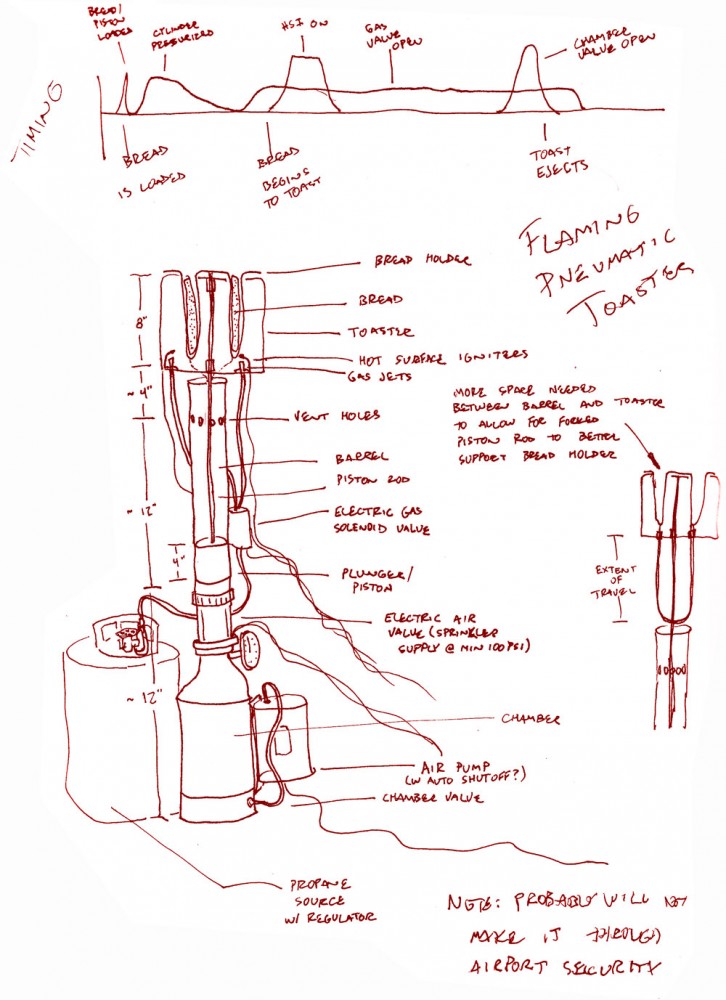 BREAD/
PISTON
LOADED
CYLINDER
PRESSURIZED
HSI ON
GAS
VALVE
OPEN
CHAMBER
VALVE OPEN
TIMING
BREAD
IS LOADED
BREAD
BEGINS
TO TOAST
TOAST
EJECTS
FLAMING
PNEUMATIC
TOASTER
BREAD HOLDER
BREAD
TOASTER
HOT SURFACE IGNITERS
GAS JETS
VENT HOLES
BARREL
PISTON ROD
ELECTRIC GAS
SOLENOID VALVE
PLUNGER/
PISTON
ELECTRIC AIR
VALVE (SPRINKLER
SUPPLY @ MIN 100 PSI)
CHAMBER
AIR PUMP
(W AUTO SHUTOFF?)
CHAMBER VALVE
PROPANE
SOURCE
W/ REGULATOR
8"
~4"
~12"
4"
~12"
MORE SPACE NEEDED
BETWEEN BARREL AND TOASTER
TO ALLOW FOR FORKED
PISTON ROD TO BETTER
SUPPORT BREAD HOLDER
EXTENT
OF
TRAVEL
NOTE: PROBABLY WILL NOT
MAKE IT THROUGH
AIRPORT SECURITY